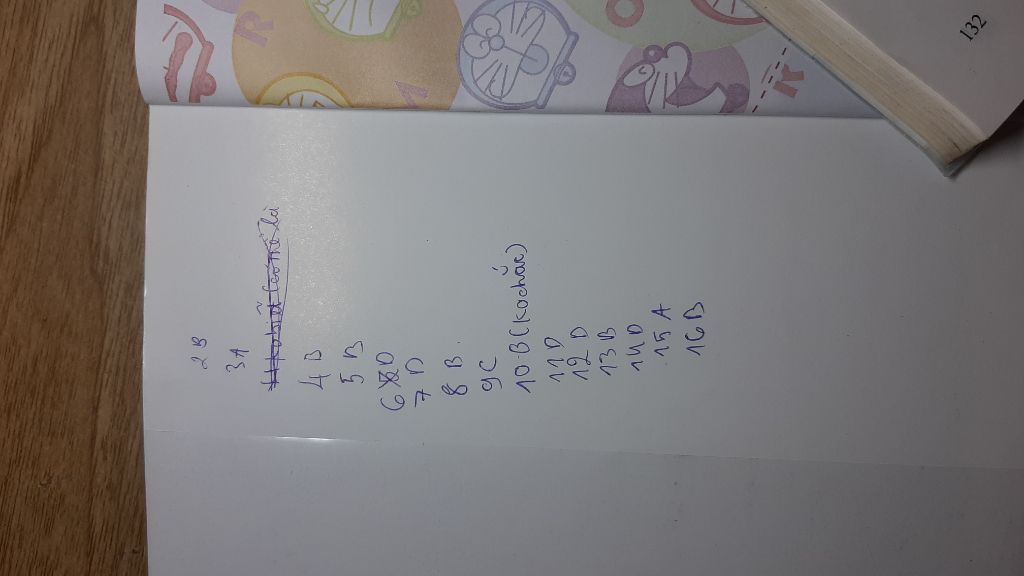 2 B
3 A
4 B
5 B
6 D
7 D
8 B.
9 C
10 B (kochắc)
11 D
12 D
13 B
14 D
15 A
16 B
132